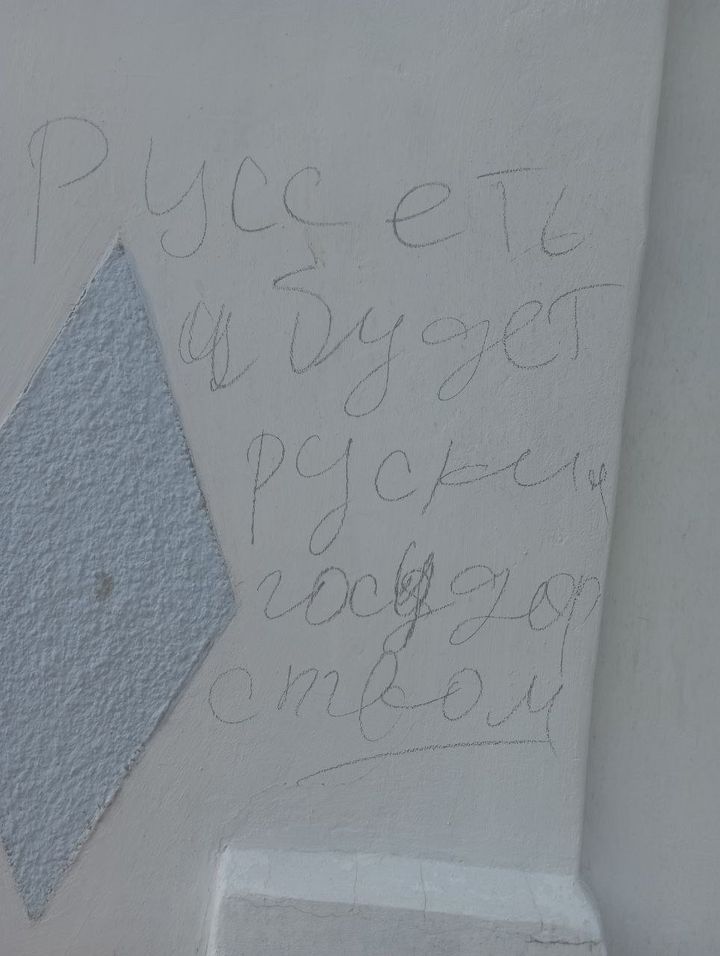 Руссеть
и будет
руским
государ
ством